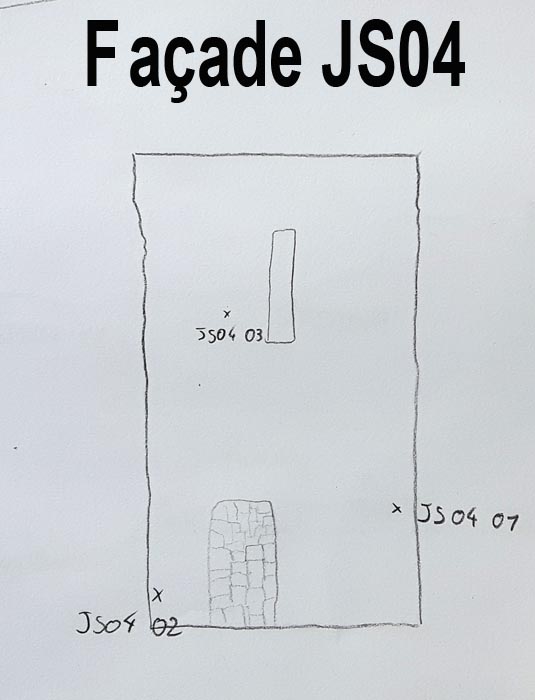 Façade JS04
JS04 03
JS04 01
JS04 02